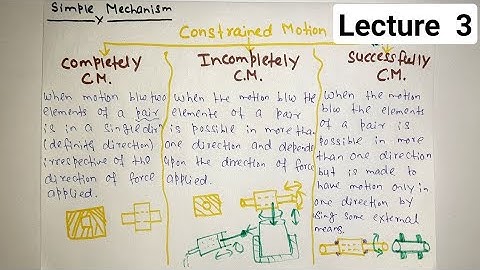 Simple Mechanism
Lecture 3
Constrained Motion
Completely
C.M.
When motion b/w two
elements of a pair
is in a single dirn
(definite direction)
irrespective of the
direction of force
applied.
Incompletely
C.M.
When the motion b/w the
elements of a pair
is possible in more than
one direction and depends
upon the direction of force
applied.
Successfully
C.M.
When the motion
b/w the elements
of a pair is
possible in more
than one direction
but is made to
have motion only in
one direction by
using some external
means.